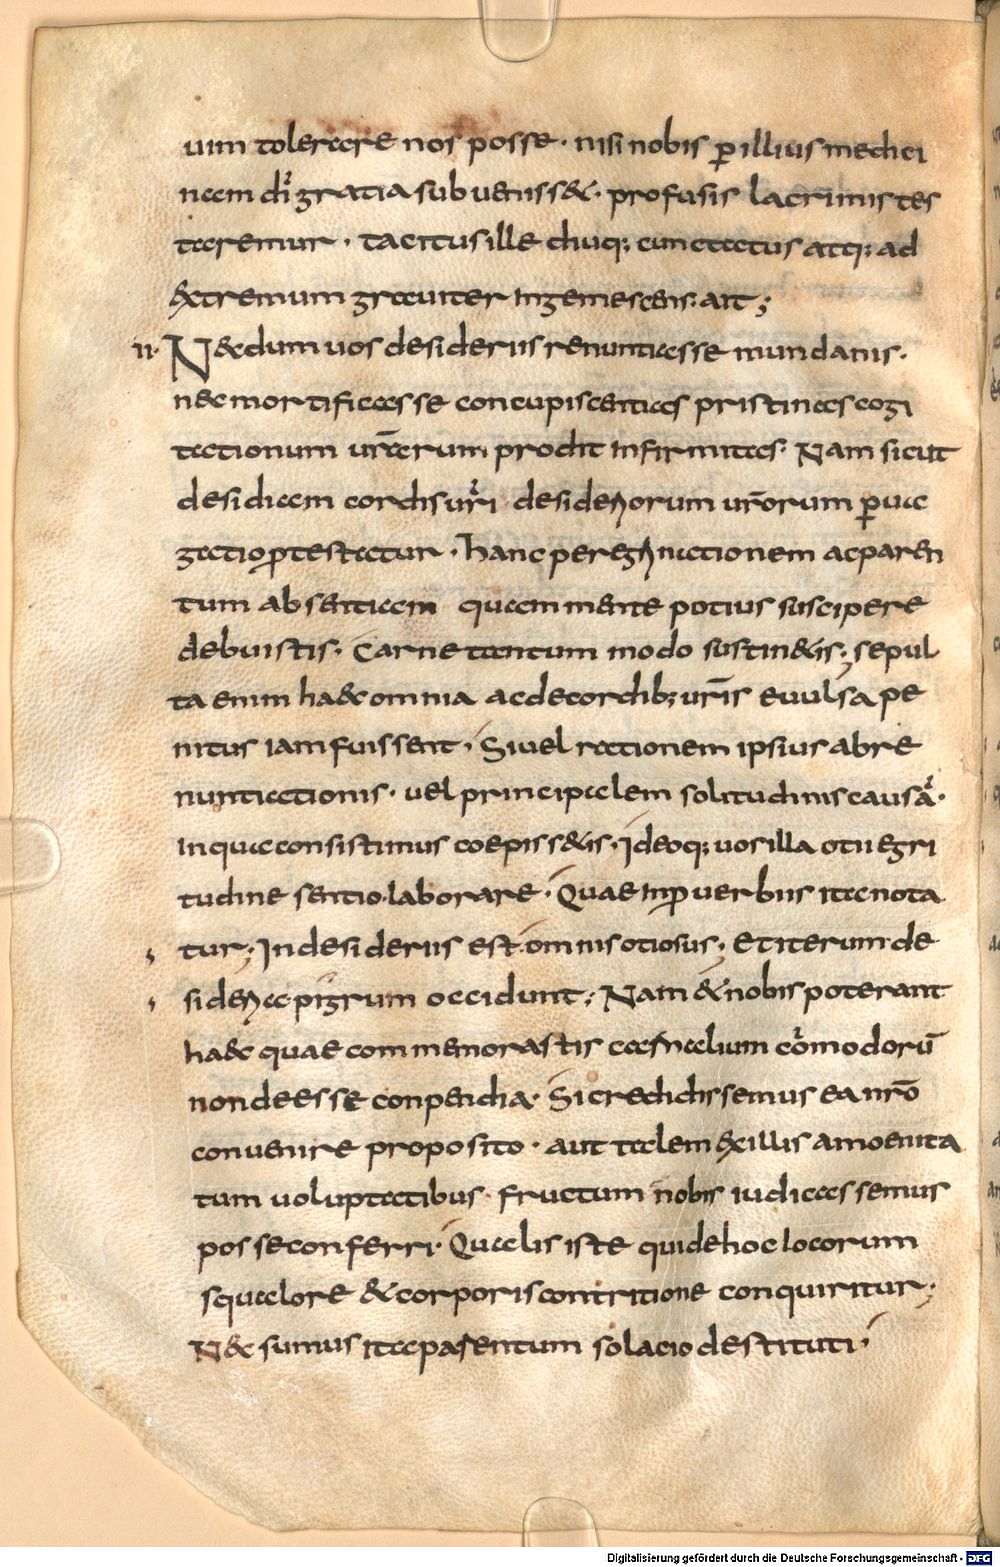 uim tolerare nos posse · nisi nobis ꝑ illius medici
nam dī gratia subueniss&· profusis lacrimis tes
taremur · tacitus ille diuq; cunctatus atq; ad
&tremum grauiter ingemescens· ait;
II· N&dum uos desideriis renuntiasse mundanis·
nec mortificasse concupiscentias pristinas cogi
tationum ur̄arum· prodit infirmitas· Nam sicut
desidiam cordis ur̄i desideriorum ur̄orum ꝑua
gatio ꝓtestatur · hanc peregrinationem ac paren
tum absentiam quam mente potius suscipere
debuistis· Carne tantum modo sustin&is; sepul
ta enim haec omnia ac de cordib; ur̄is euulsa pe
nitus iam fuissent · Si uel rationem ipsius abre
nuntiationis · uel principalem solitudinis causā·
in qua consistimus coepiss&is · Ideoq; uos illa otii egri
tudine sentio laborare · Quae in ꝓuerbiis ita nota
tur; In desideriis est omnis otiosus; Et iterum· de
sideria pigrum occidunt; Nam & nobis poterant
haec quae commemorastis carnalium cōmodorū
non deesse conpendia· Si credidissemus ea nr̄o
conuenire proposito · aut talem ex illis amoenita
tum uoluptatibus· fructum nobis iudicassemus
posse conferri· Qualis iste qui de hoc locorum
squalore & corporis contritione conquiritur;
Nec sumus ita parentum solacio destituti·
Digitalisierung gefördert durch die Deutsche Forschungsgemeinschaft - DFG